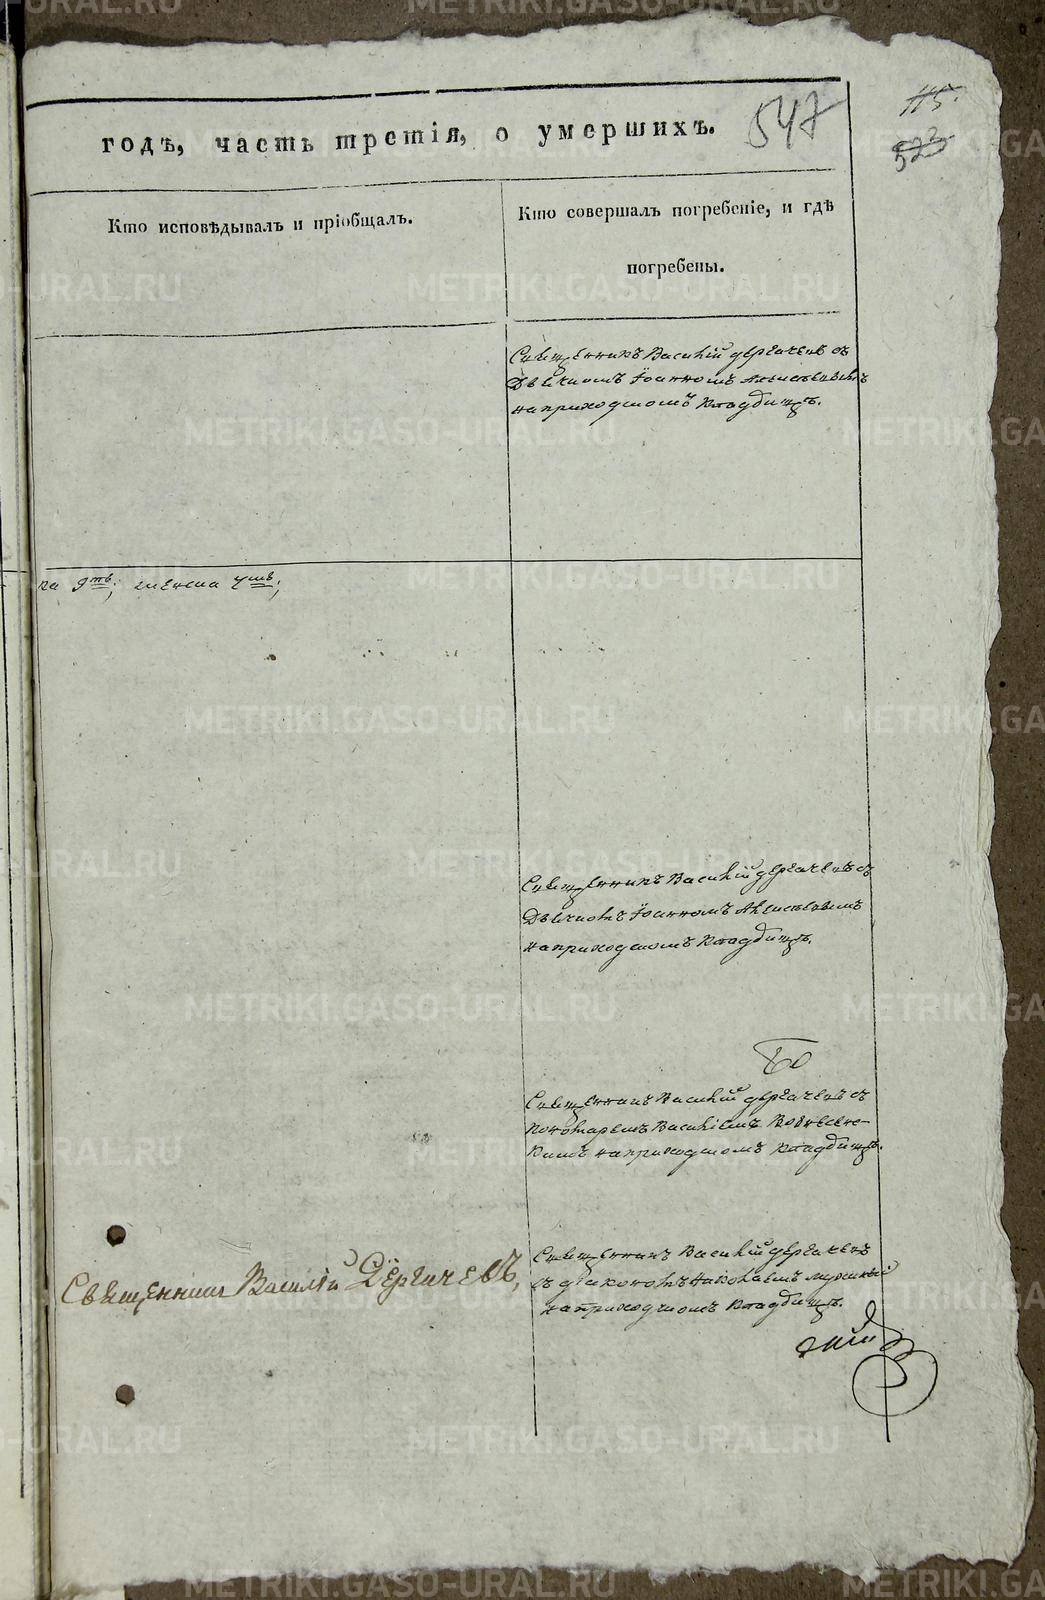 547
115.
523
годѣ, часть третія, о умершихъ.
Кто исповѣдывалъ и пріобщалъ.
Кто совершалъ погребеніе, и гдѣ
погребены.
Священникъ Василій Дергачевъ съ
Дьячкомъ Іоанномъ
на приходскомъ кладбищѣ.
Священникъ Василій Дергачевъ съ
Дьячкомъ Іоанномъ
на приходскомъ кладбищѣ.
Священникъ Василій Дергачевъ съ
Пономаремъ Василіемъ Вознесенс-
кимъ на приходскомъ кладбищѣ.
Священникъ Василій Дергачевъ
съ діакономъ Николаемъ
на приходскомъ кладбищѣ.
Священникъ Василій Дергачевъ,
METRIKI.GASO-URAL.RU